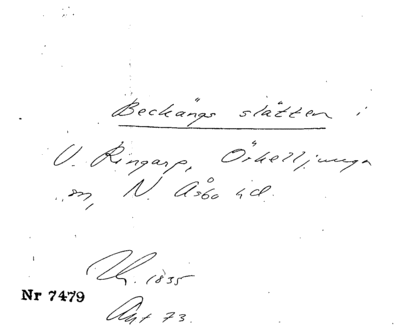 Beckängs slåtten i
V. Ringarp, Örkelljunga
sn, N. Åsbo hd.
Uh. 1835
Nr 7479
Ant 73.